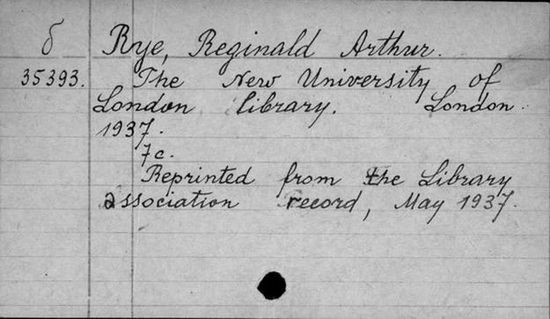 б Rye, Reginald Arthur.
35393. The New University of
London library. London.
1937.
7c.
Reprinted from the Library
association record, May 1937.